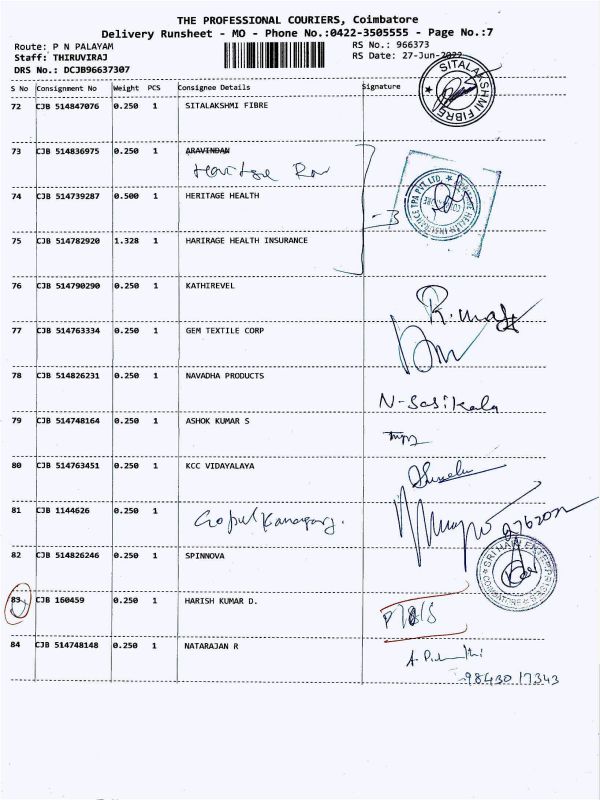 THE PROFESSIONAL COURIERS, Coimbatore
Delivery Runsheet - MO - Phone No.:0422-3505555 - Page No.:7
Route: P N PALAYAM
Staff: THIRUVIRAJ
DRS No.: DCJB96637307
RS No.: 966373
RS Date: 27-Jun-2022
S No Consignment No Weight PCS Consignee Details Signature
72 CJB 514847076 0.250 1 SITALAKSHMI FIBRE
SITALAKSHMI FIBRE
73 CJB 514836975 0.250 1 ARAVINDAN
Heritage
74 CJB 514739287 0.500 1 HERITAGE HEALTH
-3
75 CJB 514782920 1.328 1 HARIRAGE HEALTH INSURANCE
76 CJB 514790290 0.250 1 KATHIREVEL
77 CJB 514763334 0.250 1 GEM TEXTILE CORP
78 CJB 514826231 0.250 1 NAVADHA PRODUCTS
N-Sasikala
79 CJB 514748164 0.250 1 ASHOK KUMAR S
80 CJB 514763451 0.250 1 KCC VIDAYALAYA
81 CJB 1144626 0.250 1
82 CJB 514826246 0.250 1 SPINNOVA
83 CJB 160459 0.250 1 HARISH KUMAR D.
84 CJB 514748148 0.250 1 NATARAJAN R
98430 17343